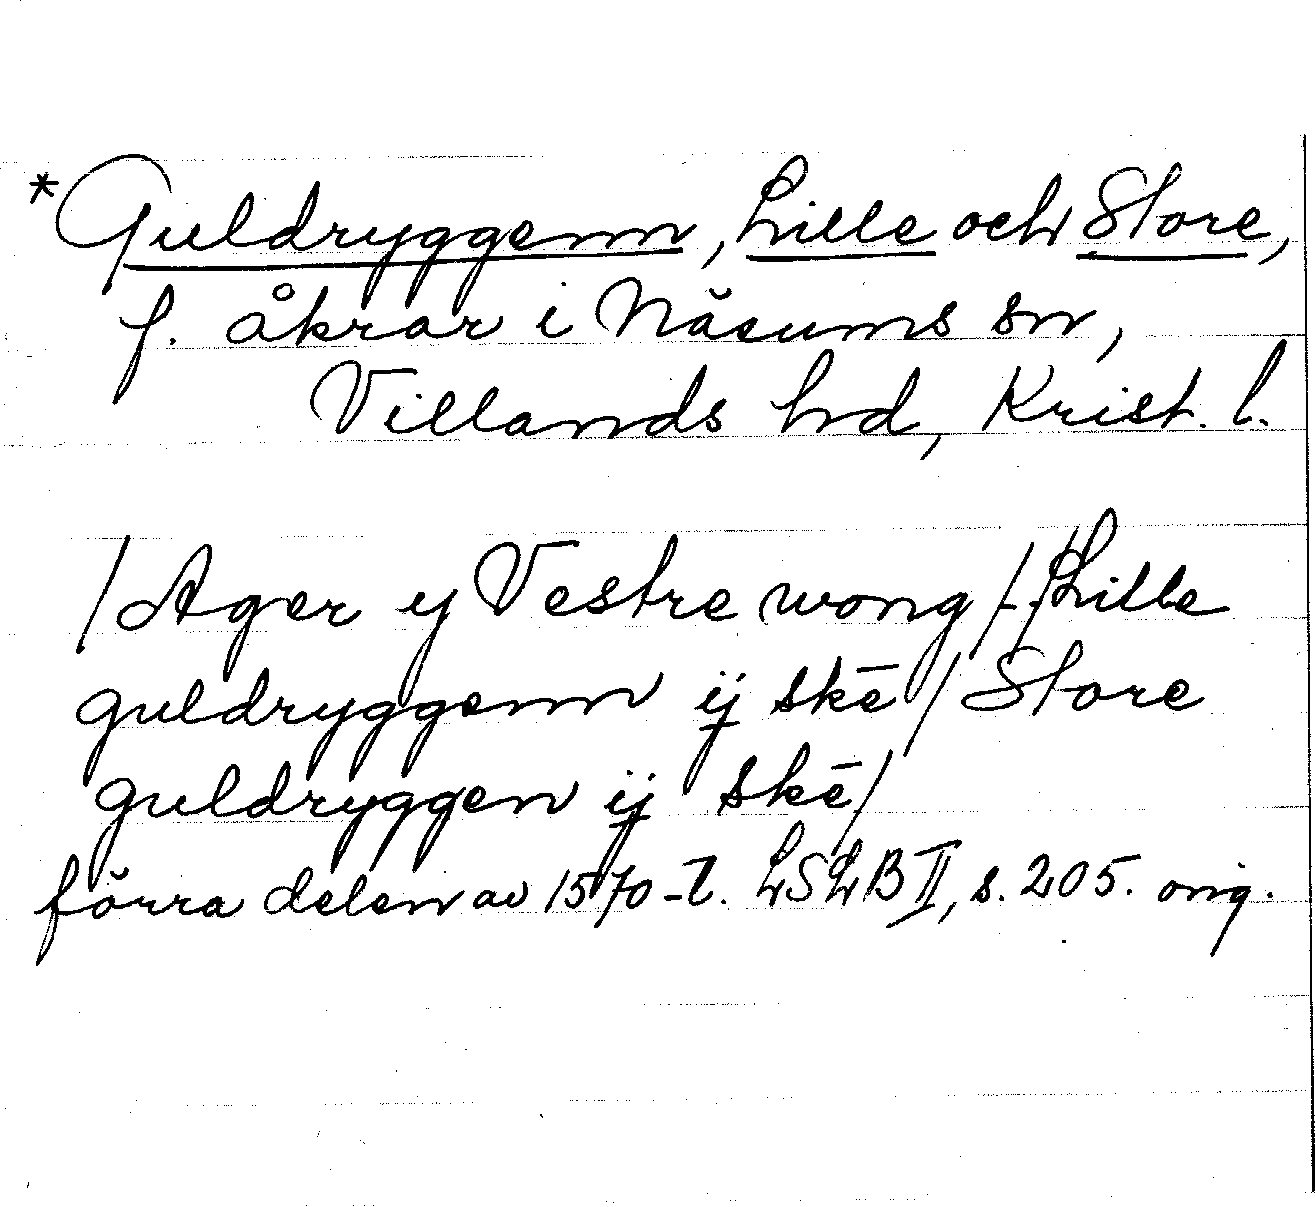 *Guldryggenn, Lille och Store,
f. åkrar i Näsums sn,
Villands hd, Krist. l.
/Ager y Vestre wong/-/Lille
guldryggenn ij skē/Store
guldryggen ij skē/
förra delen av 1570-t. LSLB II, s. 205. orig.